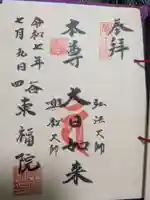 奉拝
弘法大師
本尊 大日如来
興教大師
令和七年
七月九日
四谷
東福院